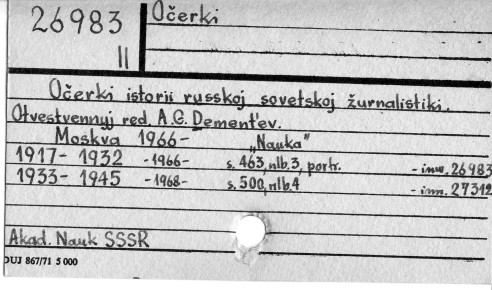 26983
II
Očerki
Očerki istorii russkoj sovetskoj žurnalistiki.
Otvestvennyj red. A.G. Dement'ev.
Moskva 1966- „Nauka"
1917-1932 -1966- s. 463, nlb. 3, portr. - inw. 26983
1933-1945 -1968- s. 500, nlb. 4 - inn. 27312
Akad. Nauk SSSR
DUJ 867/71 5 000